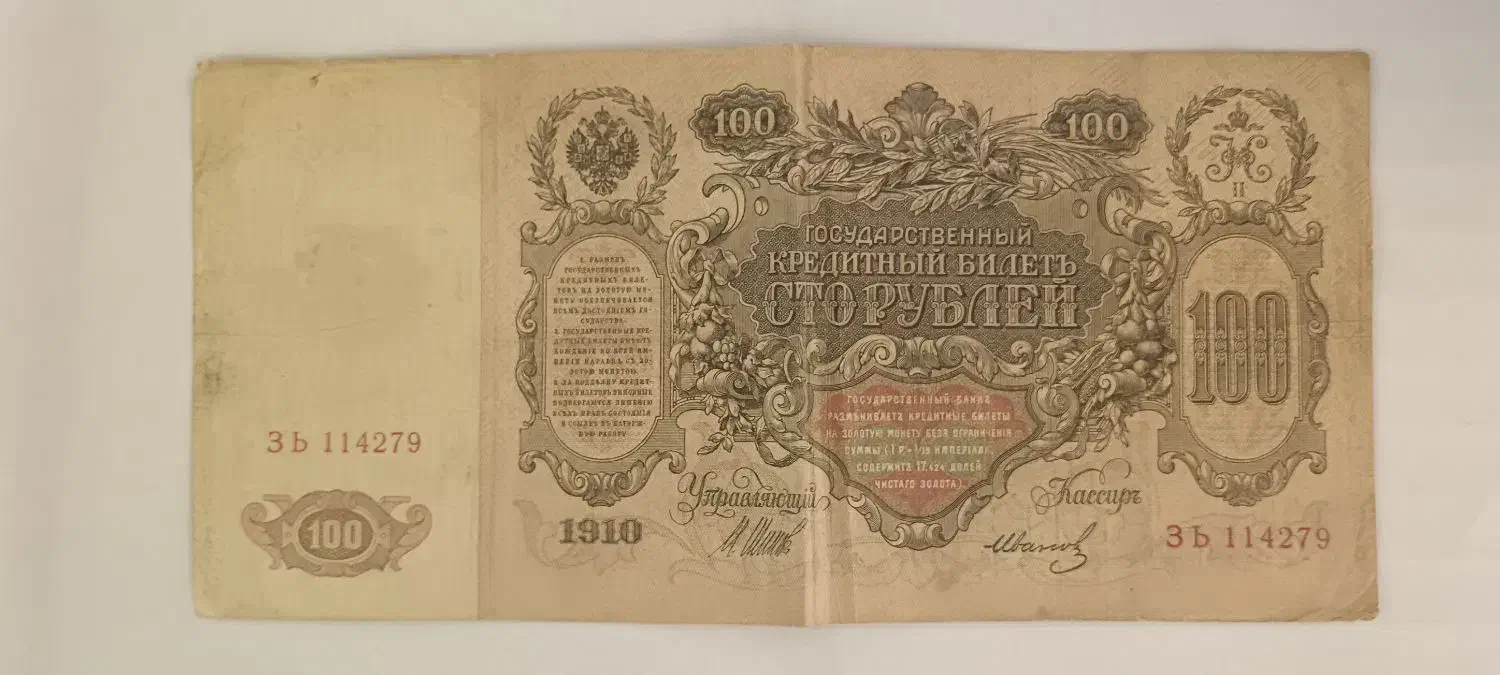 100
100
Н
II
ГОСУДАРСТВЕННЫЙ
КРЕДИТНЫЙ БИЛЕТЪ
СТО РУБЛЕЙ
1. РАЗМѢНЪ
ГОСУДАРСТВЕННЫХЪ
КРЕДИТНЫХЪ БИЛЕ-
ТОВЪ НА ЗОЛОТУЮ МО-
НЕТУ ОБЕЗПЕЧИВАЕТСЯ
ВСѢМЪ ДОСТОЯНІЕМЪ ГО-
СУДАРСТВА.
2. ГОСУДАРСТВЕННЫЕ КРЕ-
ДИТНЫЕ БИЛЕТЫ ИМѢЮТЪ
ХОЖДЕНІЕ ВО ВСЕЙ ИМ-
ПЕРІИ НАРАВНѢ СЪ ЗО-
ЛОТОЮ МОНЕТОЮ.
3. ЗА ПОДДѢЛКУ КРЕДИТ-
НЫХЪ БИЛЕТОВЪ ВИНОВНЫЕ
ПОДВЕРГАЮТСЯ ЛИШЕНІЮ
ВСѢХЪ ПРАВЪ СОСТОЯНІЯ
И ССЫЛКѢ ВЪ КАТОРЖ-
НУЮ РАБОТУ
100
ГОСУДАРСТВЕННЫЙ БАНКЪ
РАЗМѢНИВАЕТЪ КРЕДИТНЫЕ БИЛЕТЫ
НА ЗОЛОТУЮ МОНЕТУ БЕЗЪ ОГРАНИЧЕНІЯ
СУММЫ (1 Р.= 1/15 ИМПЕРІАЛА,
СОДЕРЖИТЪ 17,424 ДОЛЕЙ
ЧИСТАГО ЗОЛОТА).
Управляющій
Кассиръ
ЗЬ 114279
100
1910
И Шипов
Иванов
ЗЬ 114279